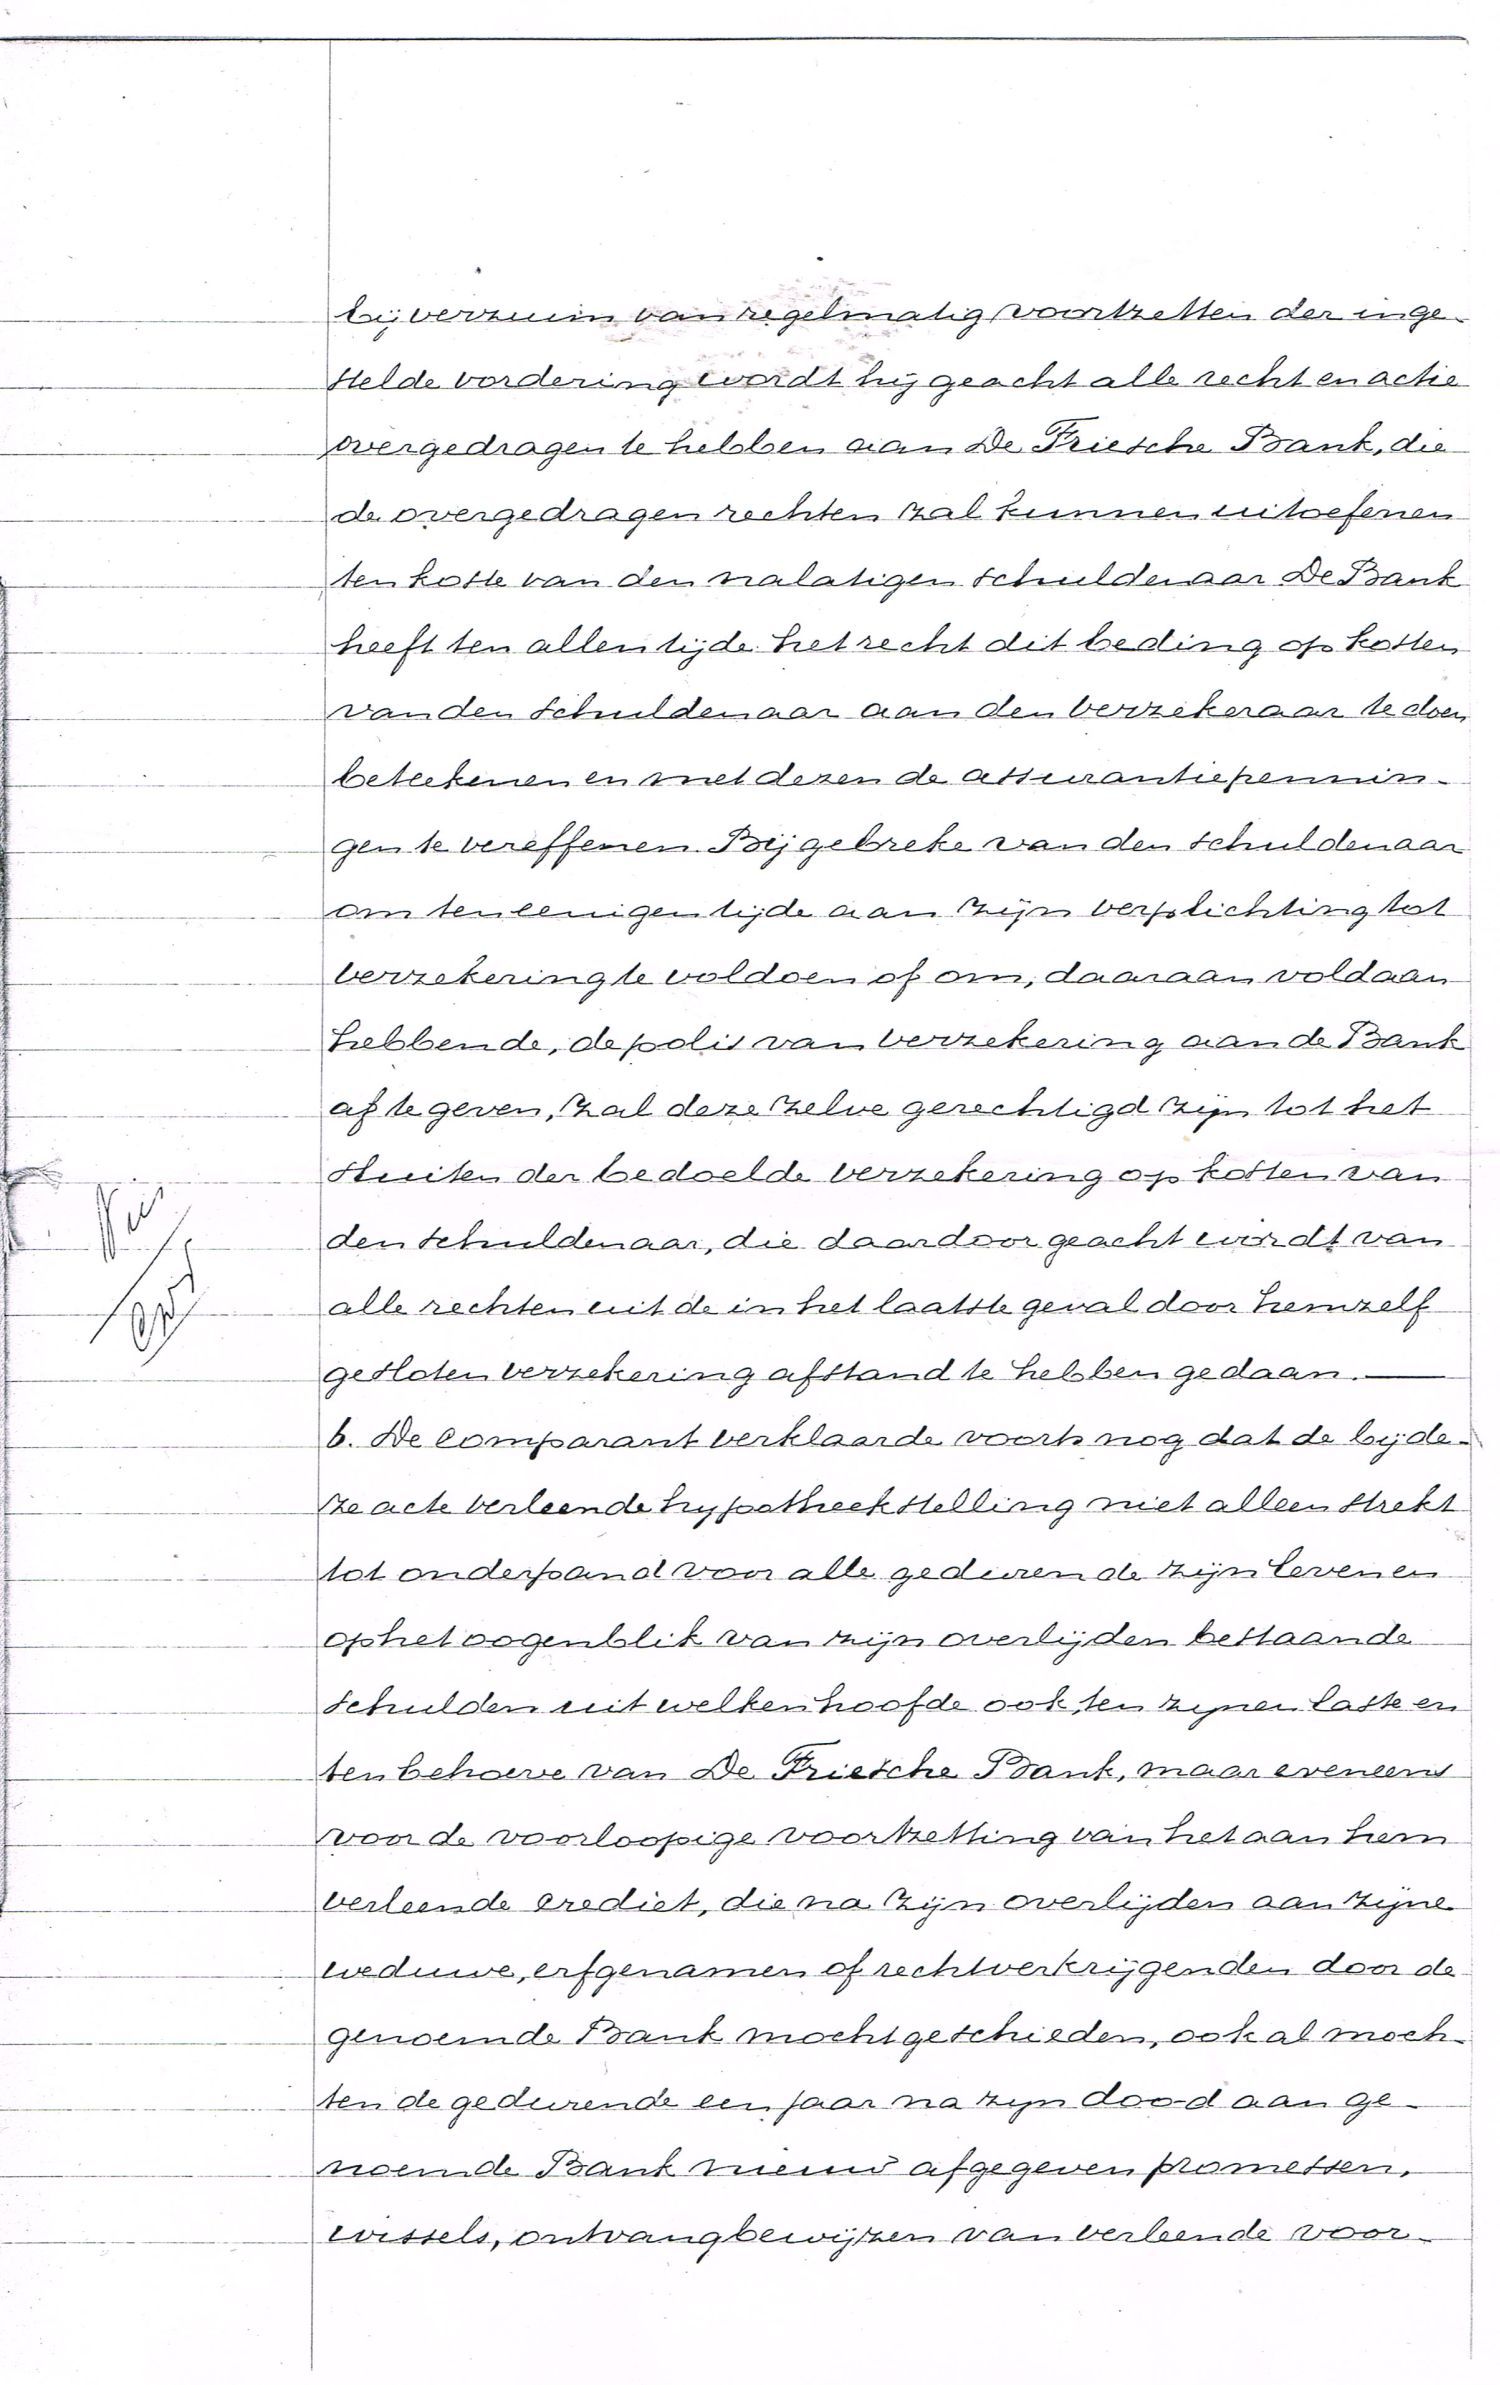 bij verzuim van regelmatig voortzetten der inge-
stelde vordering wordt hij geacht alle recht en actie
overgedragen te hebben aan De Friesche Bank, die
de overgedragen rechten zal kunnen uitoefenen
ten koste van den nalatigen schuldenaar De Bank
heeft ten allen tijde het recht dit beding op kosten
van den schuldenaar aan den verzekeraar te doen
beteekenen en met dezen de assurantiepennin-
gen te vereffenen. Bij gebreke van den schuldenaar
om ten eenigen tijde aan zijn verplichting tot
verzekering te voldoen of om, daaraan voldaan
hebbende, de polis van verzekering aan de Bank
af te geven, zal deze zelve gerechtigd zijn tot het
sluiten der bedoelde verzekering op kosten van
den schuldenaar, die daardoor geacht wordt van
alle rechten uit de in het laatste geval door hemzelf
gesloten verzekering afstand te hebben gedaan.
6. De comparant verklaarde voorts nog dat de bij de-
ze acte verleende hypotheekstelling niet alleen strekt
tot onderpand voor alle gedurende zijn leven en
op het oogenblik van zijn overlijden bestaande
schulden uit welken hoofde ook, ten zijnen laste en
ten behoeve van De Friesche Bank, maar eveneens
voor de voorloopige voortzetting van het aan hem
verleende crediet, die na zijn overlijden aan zijne
weduwe, erfgenamen of rechtverkrijgenden door de
genoemde Bank mocht geschieden, ook al moch-
ten de gedurende een jaar na zijn dood aan ge-
noemde Bank nieuw afgegeven promessen,
wissels, ontvangbewijzen van verleende voor-